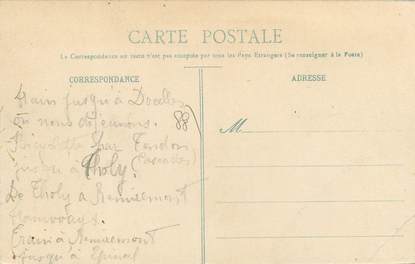 CARTE POSTALE
La Correspondance au recto n'est pas acceptée par tous les Pays Etrangers (Se renseigner à la Poste)
CORRESPONDANCE
ADRESSE
Train jusqu'à Docelles
où nous déjeunons.
88
Bicyclette par Tendon
(Cascades)
jusqu'à Tholy.
De Tholy à Remiremont
Tramways.
Train à Remiremont
jusqu'à Epinal
M